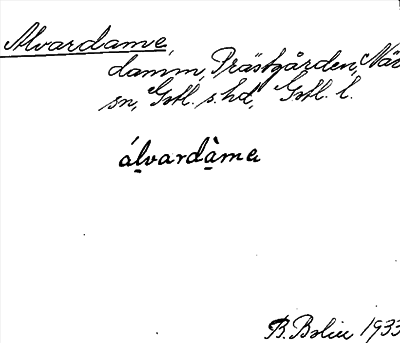 Alvardame,
damm, Prästgården, När
sn, Gotl. s. hd, Gotl. l.
álvardàme
B. Bolin 1933